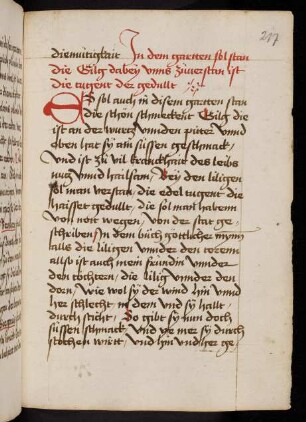 217
diemüttigkait In dem gartten sol stan
die Gilg dabey vnns zůuerstan ist
die tugent der gedullt
ES sol auch in disem garten stan
die schön schmeckent Gilg die
ist an der wurtz vnnden pitter vnnd
oben hat sy ain süssen geschmack,
vnd ist zů vil kranckhait des leibs
nutz vnnd hailsam, Bey den liligen
sol man verstan, die edel tugent die
haisset gedullt, die sol man habenn
von nott wegen, von der stat ge
schriben In dem bůch göttlicher mynn
alls die liligen vnnder den torenn
allso ist auch mein freündin vnnder
den töchtern, die lilig vnnder den
dorn, wie wol sy der wind hin vnnd
her schlecht in dem vnd sy hallt
durch sticht, So gibt sy nun doch
süssen schmack, Vnd ye mer sy durch
stochen wirtt, vnd hin vnd her ge